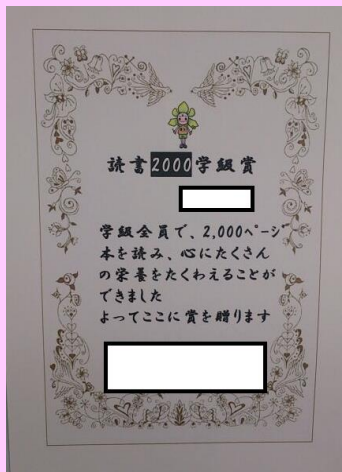 読書2000学級賞
学級全員で、2,000ページ
本を読み、心にたくさん
の栄養をたくわえることが
できました
よってここに賞を贈ります